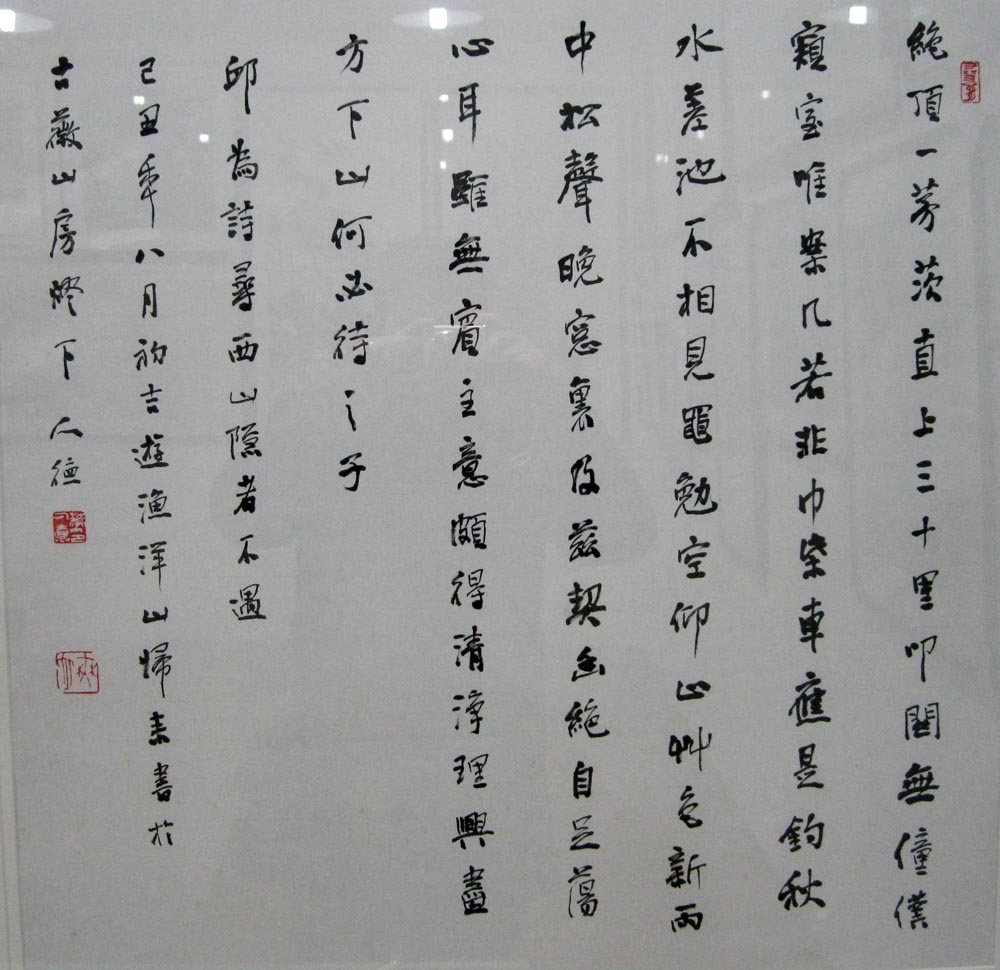 絶頂一茅茨直上三十里叩關無僮僕
窺室唯案几若非巾柴車應是釣秋
水差池不相見黽勉空仰止艸色新雨
中松聲晚窓裏及茲契幽絶自足蕩
心耳雖無賓主意頗得清淨理興盡
方下山何必待之子
邱為詩尋西山隱者不遇
己丑年八月初吉遊漁洋山歸来書於
古薇山房燈下人德